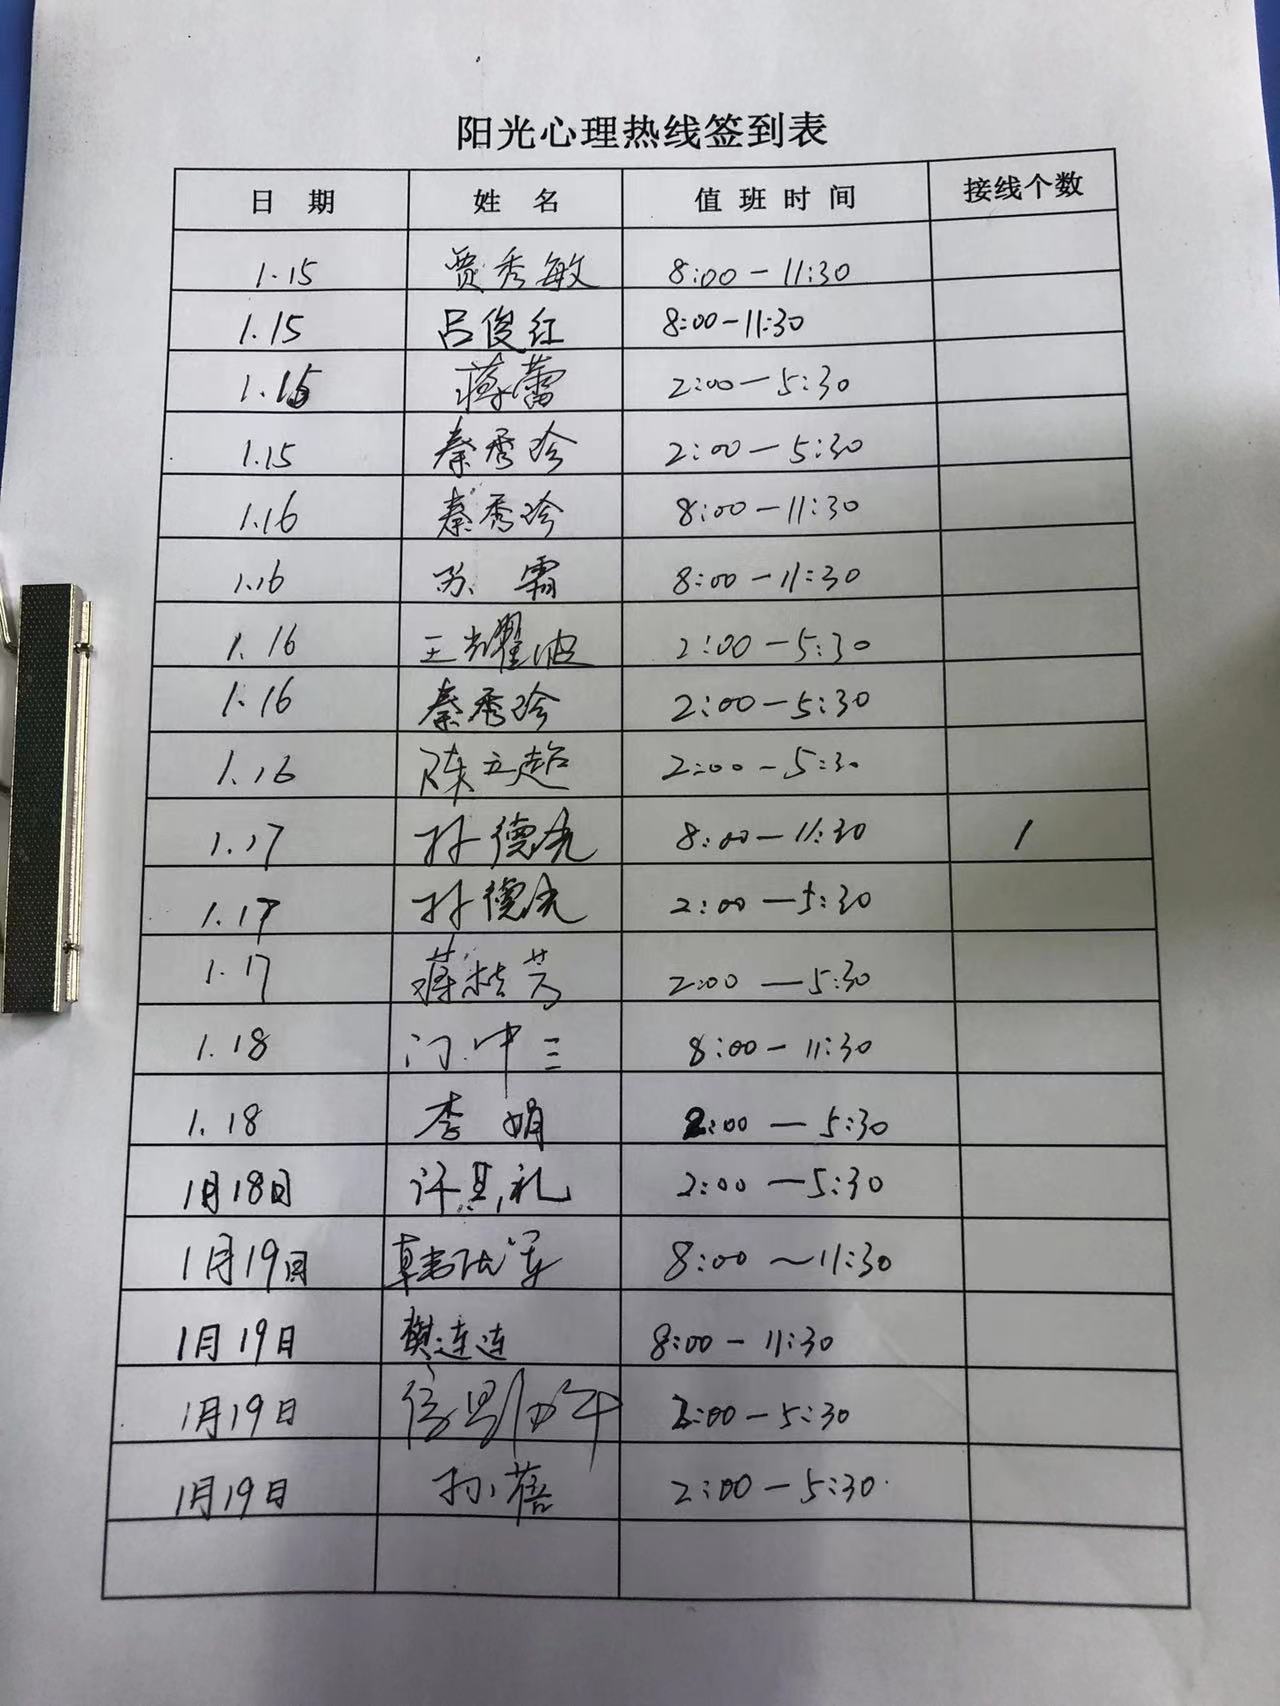 阳光心理热线签到表
日 期 姓 名 值 班 时 间 接线个数
1.15 贾秀敏 8:00-11:30
1.15 吕俊红 8:00-11:30
1.15 蒋蕾 2:00-5:30
1.15 秦秀珍 2:00-5:30
1.16 秦秀珍 8:00-11:30
1.16 苏霜 8:00-11:30
1.16 王耀波 2:00-5:30
1.16 秦秀珍 2:00-5:30
1.16 陈立超 2:00-5:30
1.17 孙德 8:00-11:30 1
1.17 孙德 2:00-5:30
1.17 蒋桂芳 2:00-5:30
1.18 门中三 8:00-11:30
1.18 李娟 2:00-5:30
1月18日 许其礼 2:00-5:30
1月19日 8:00~11:30
1月19日 樊连连 8:00-11:30
1月19日 2:00-5:30
1月19日 孙蓓 2:00-5:30